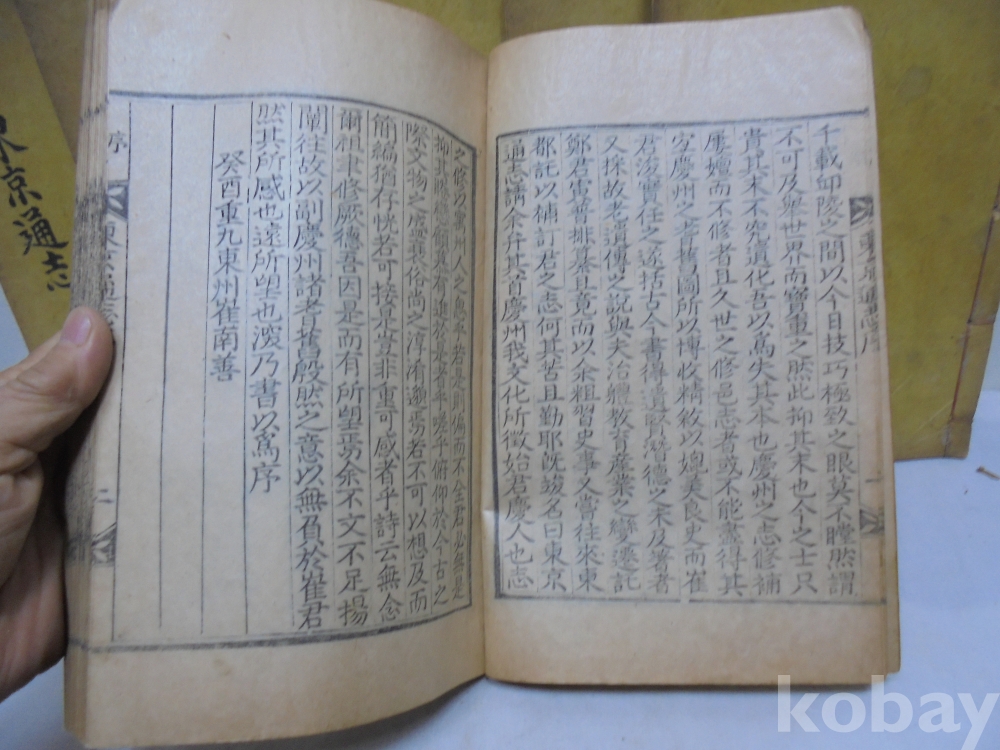 千載卽陵之間以今日技巧極致之眼莫不瞠然謂
不可及舉世界而寶重之然此抑其末也今之士只
貴其末不究遺化吾以爲失其本也慶州之志修補
屢嬗而不修者且久世之修邑志者或不能盡得其
宜慶州之耆舊圖所以博收精敘以媲美良史而崔
君浚實任之遂括古今書得遺賢潛德之未及著者
又採故老遺傳之說與夫治體敎育産業之變遷託
鄭君雷普排纂且竟而以余粗習史事又嘗往來東
都託以補訂君之志何其苦且勤耶旣竣名曰東京
通志請余弁其首慶州我文化所徵始君慶人也志
之修以
州人之
乎若是則偏而不全君必無是
乎嗟乎俯仰於今古之
際文物之盛衰俗尙之淳淆邈焉若不可以想及而
簡編猶存怳若可接是豈非重可感者乎詩云無念
爾祖聿修厥德吾因是而有所望焉余不文不足揚
闡往故以副慶州諸老耆舊殷然之意以無負於崔君
然其所感也遠所望也深乃書以爲序
癸酉重九東州崔南善
序
東京通志
二
東京通志序
一
東京通志
kobay